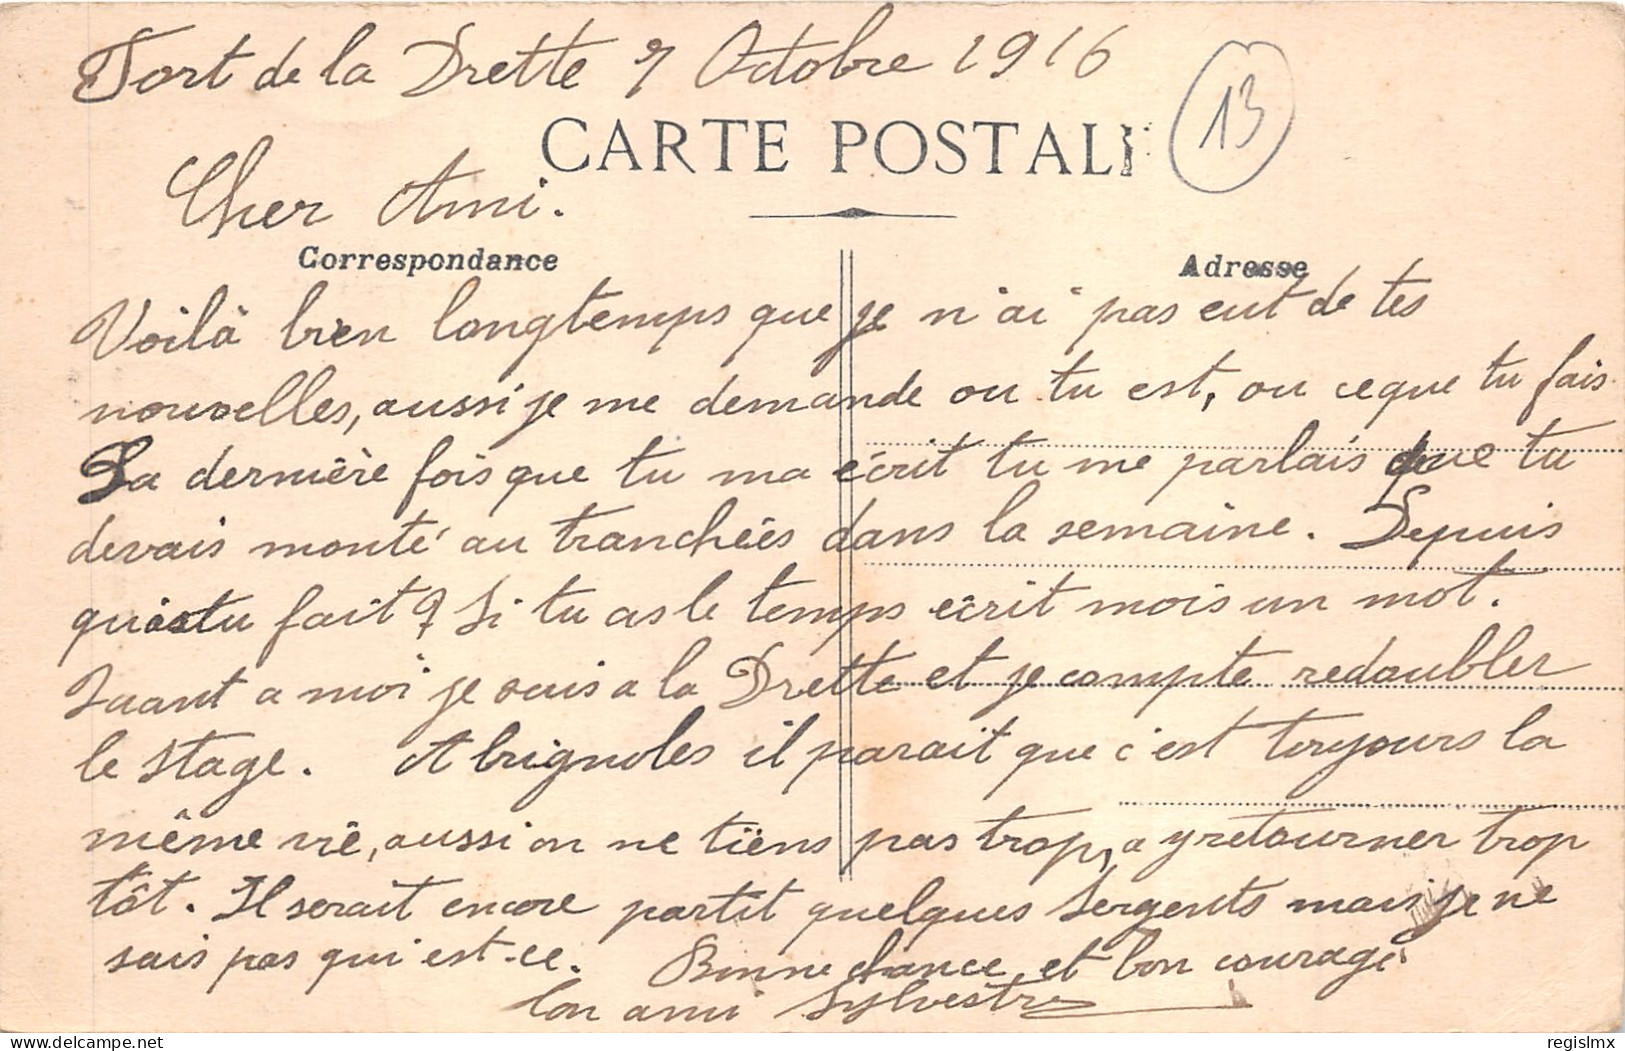 Fort de la Drette 7 Octobre 1916
13
CARTE POSTALE
Cher Ami.
Correspondance
Adresse
Voilà bien longtemps que je n'ai pas eut de tes
nouvelles, aussi je me demande ou tu est, ou ce que tu fais.
La dernière fois que tu ma écrit tu me parlais que tu
devais monté au tranchées dans la semaine. Depuis
qu'as tu fait ? Si tu as le temps écrit mois un mot.
Quant a moi je suis a la Drette et je compte redoubler
le stage. A brignoles il parait que c'est toujours la
même vie, aussi on ne tiens pas trop, a y retourner trop
tôt. Il serait encore partit quelques Sergents mais je ne
sais pas qui est-ce. Bonne chance et bon courage
Ton ami Sylvestre
delcampe.net
regislmx